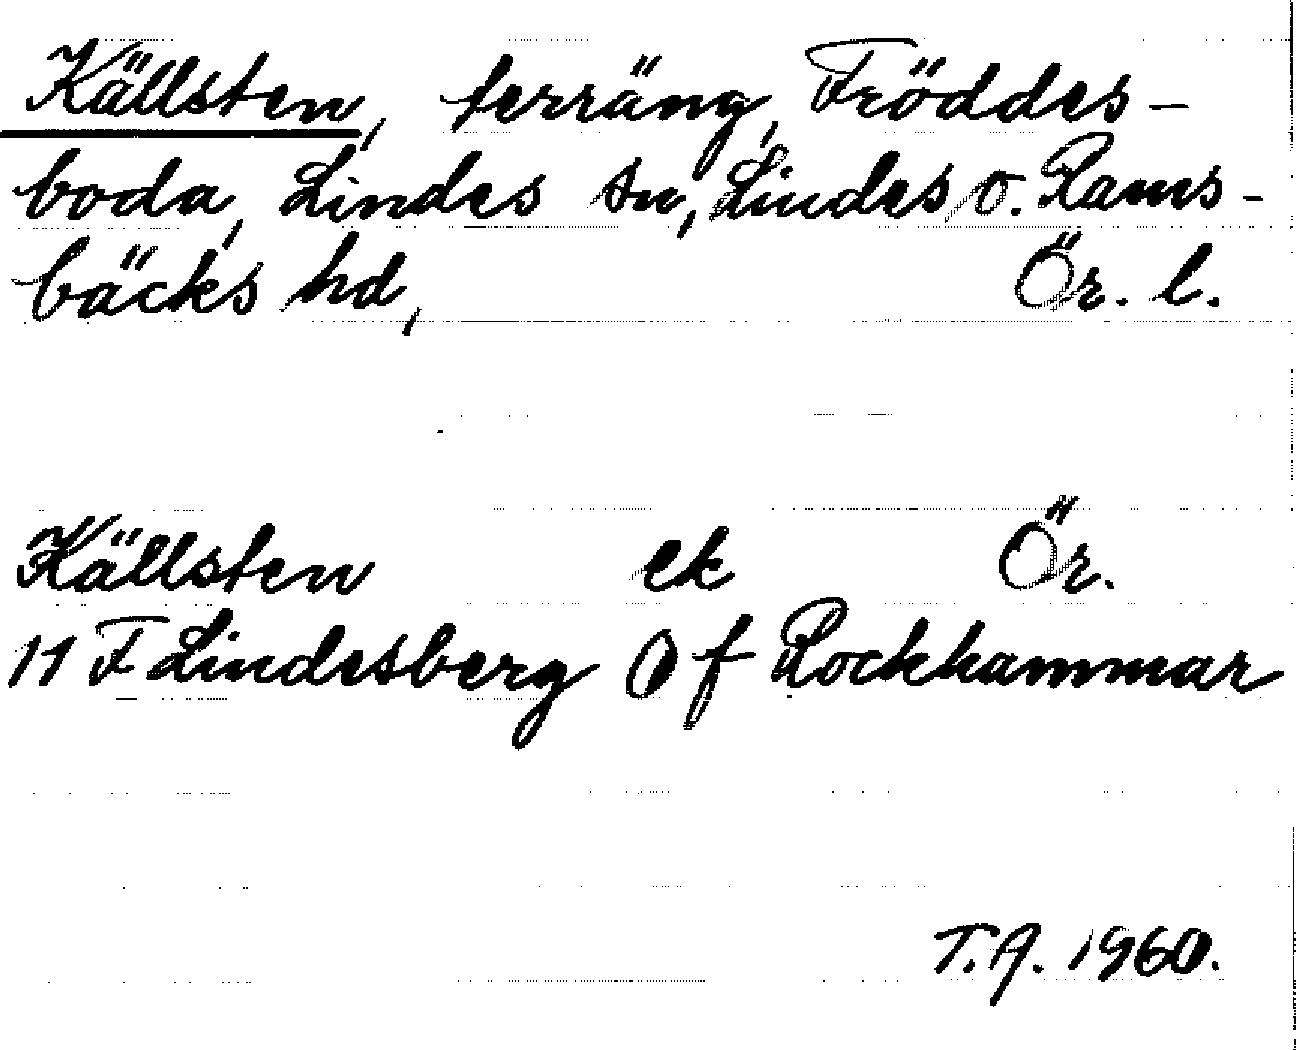 Källsten, terräng, Fröddes-
boda, Lindes sn, Lindes o. Rams-
bäcks hd, Ör. l.
Källsten ek Ör.
11 F Lindesberg Of Rockhammar
T.A. 1960.